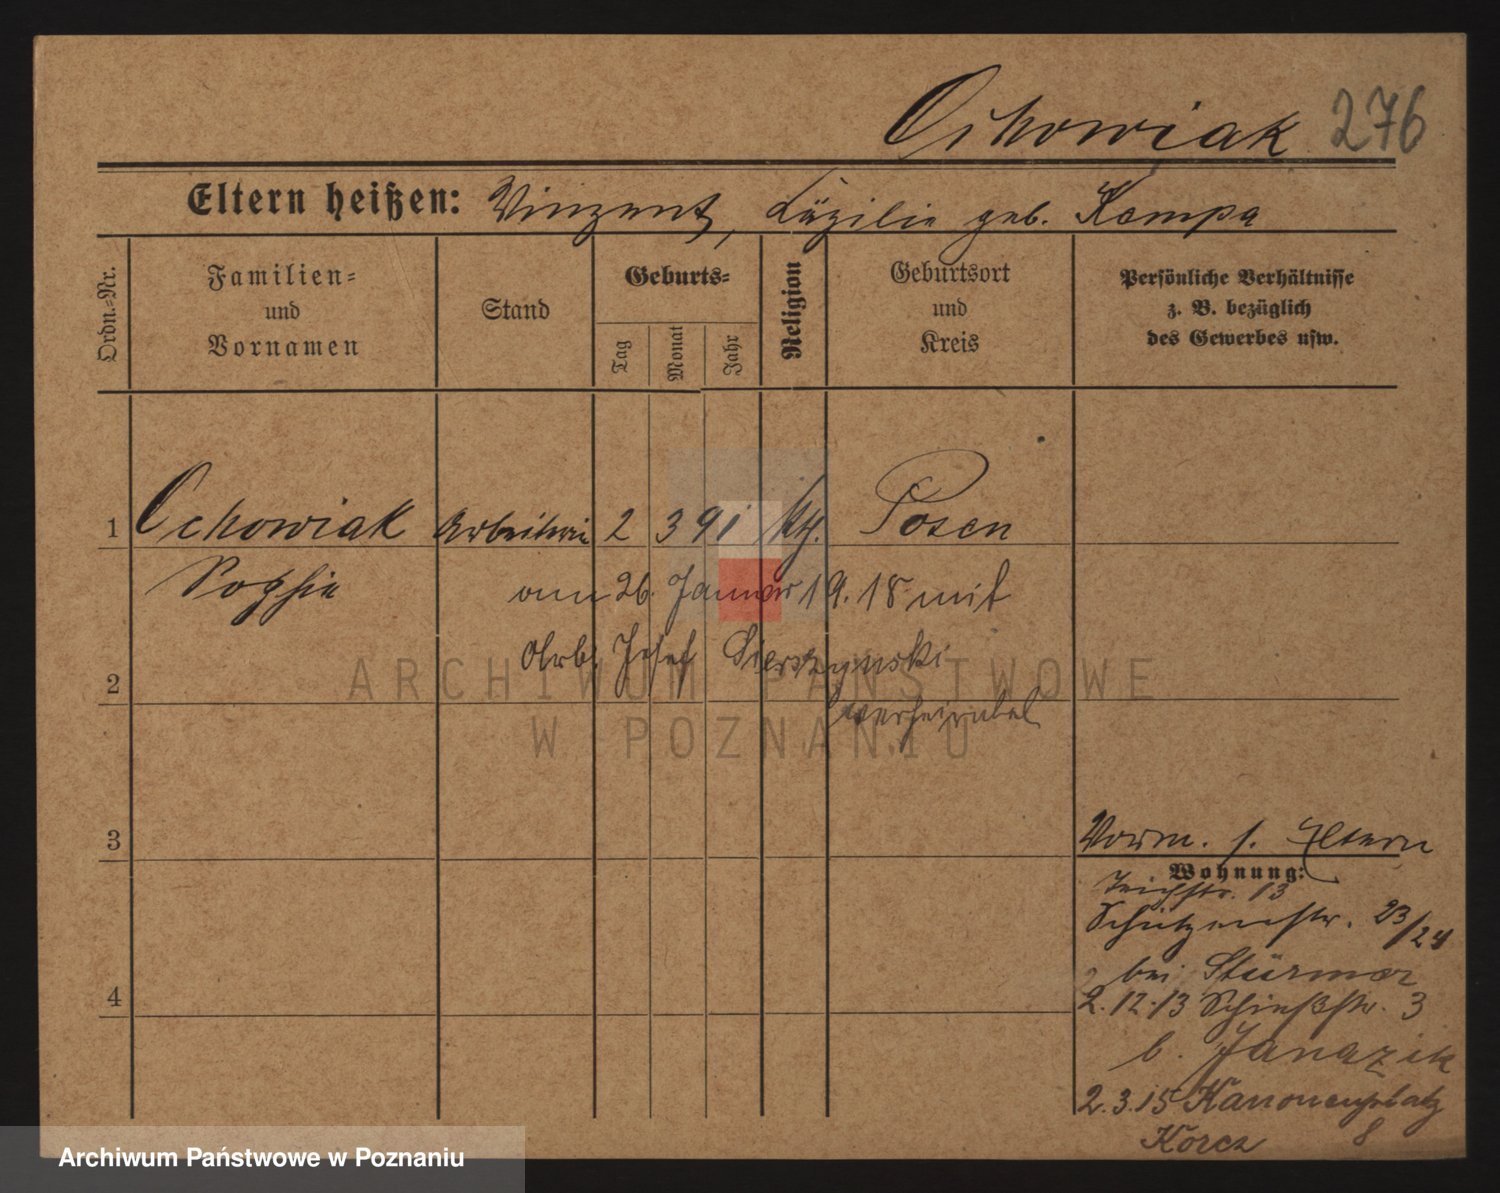 Ochowiak 276
Eltern heißen: Vinzent, Cäzilie geb. Kempa
Ordn.=Nr.
Familien=
und
Vornamen
Stand
Geburts=
Tag
Monat
Jahr
Religion
Geburtsort
und
Kreis
Persönliche Verhältnisse
z. B. bezüglich
des Gewerbes usw.
1 Ochowiak Arbeiterin 2 3 91 kth. Posen
Sophie
am 26. Januar 19.18 mit
Arb. Josef Sierszynski
verheiratet
2
3
4
Vorm. s. Eltern
Wohnung:
Teichstr. 13
Schützenstr. 23/24
bei Stürmer
2.12.13 Schießstr. 3
b. Janazik
2.3.15 Kanonenplatz
Korcz 8
ARCHIWUM PAŃSTWOWE
W POZNANIU
Archiwum Państwowe w Poznaniu